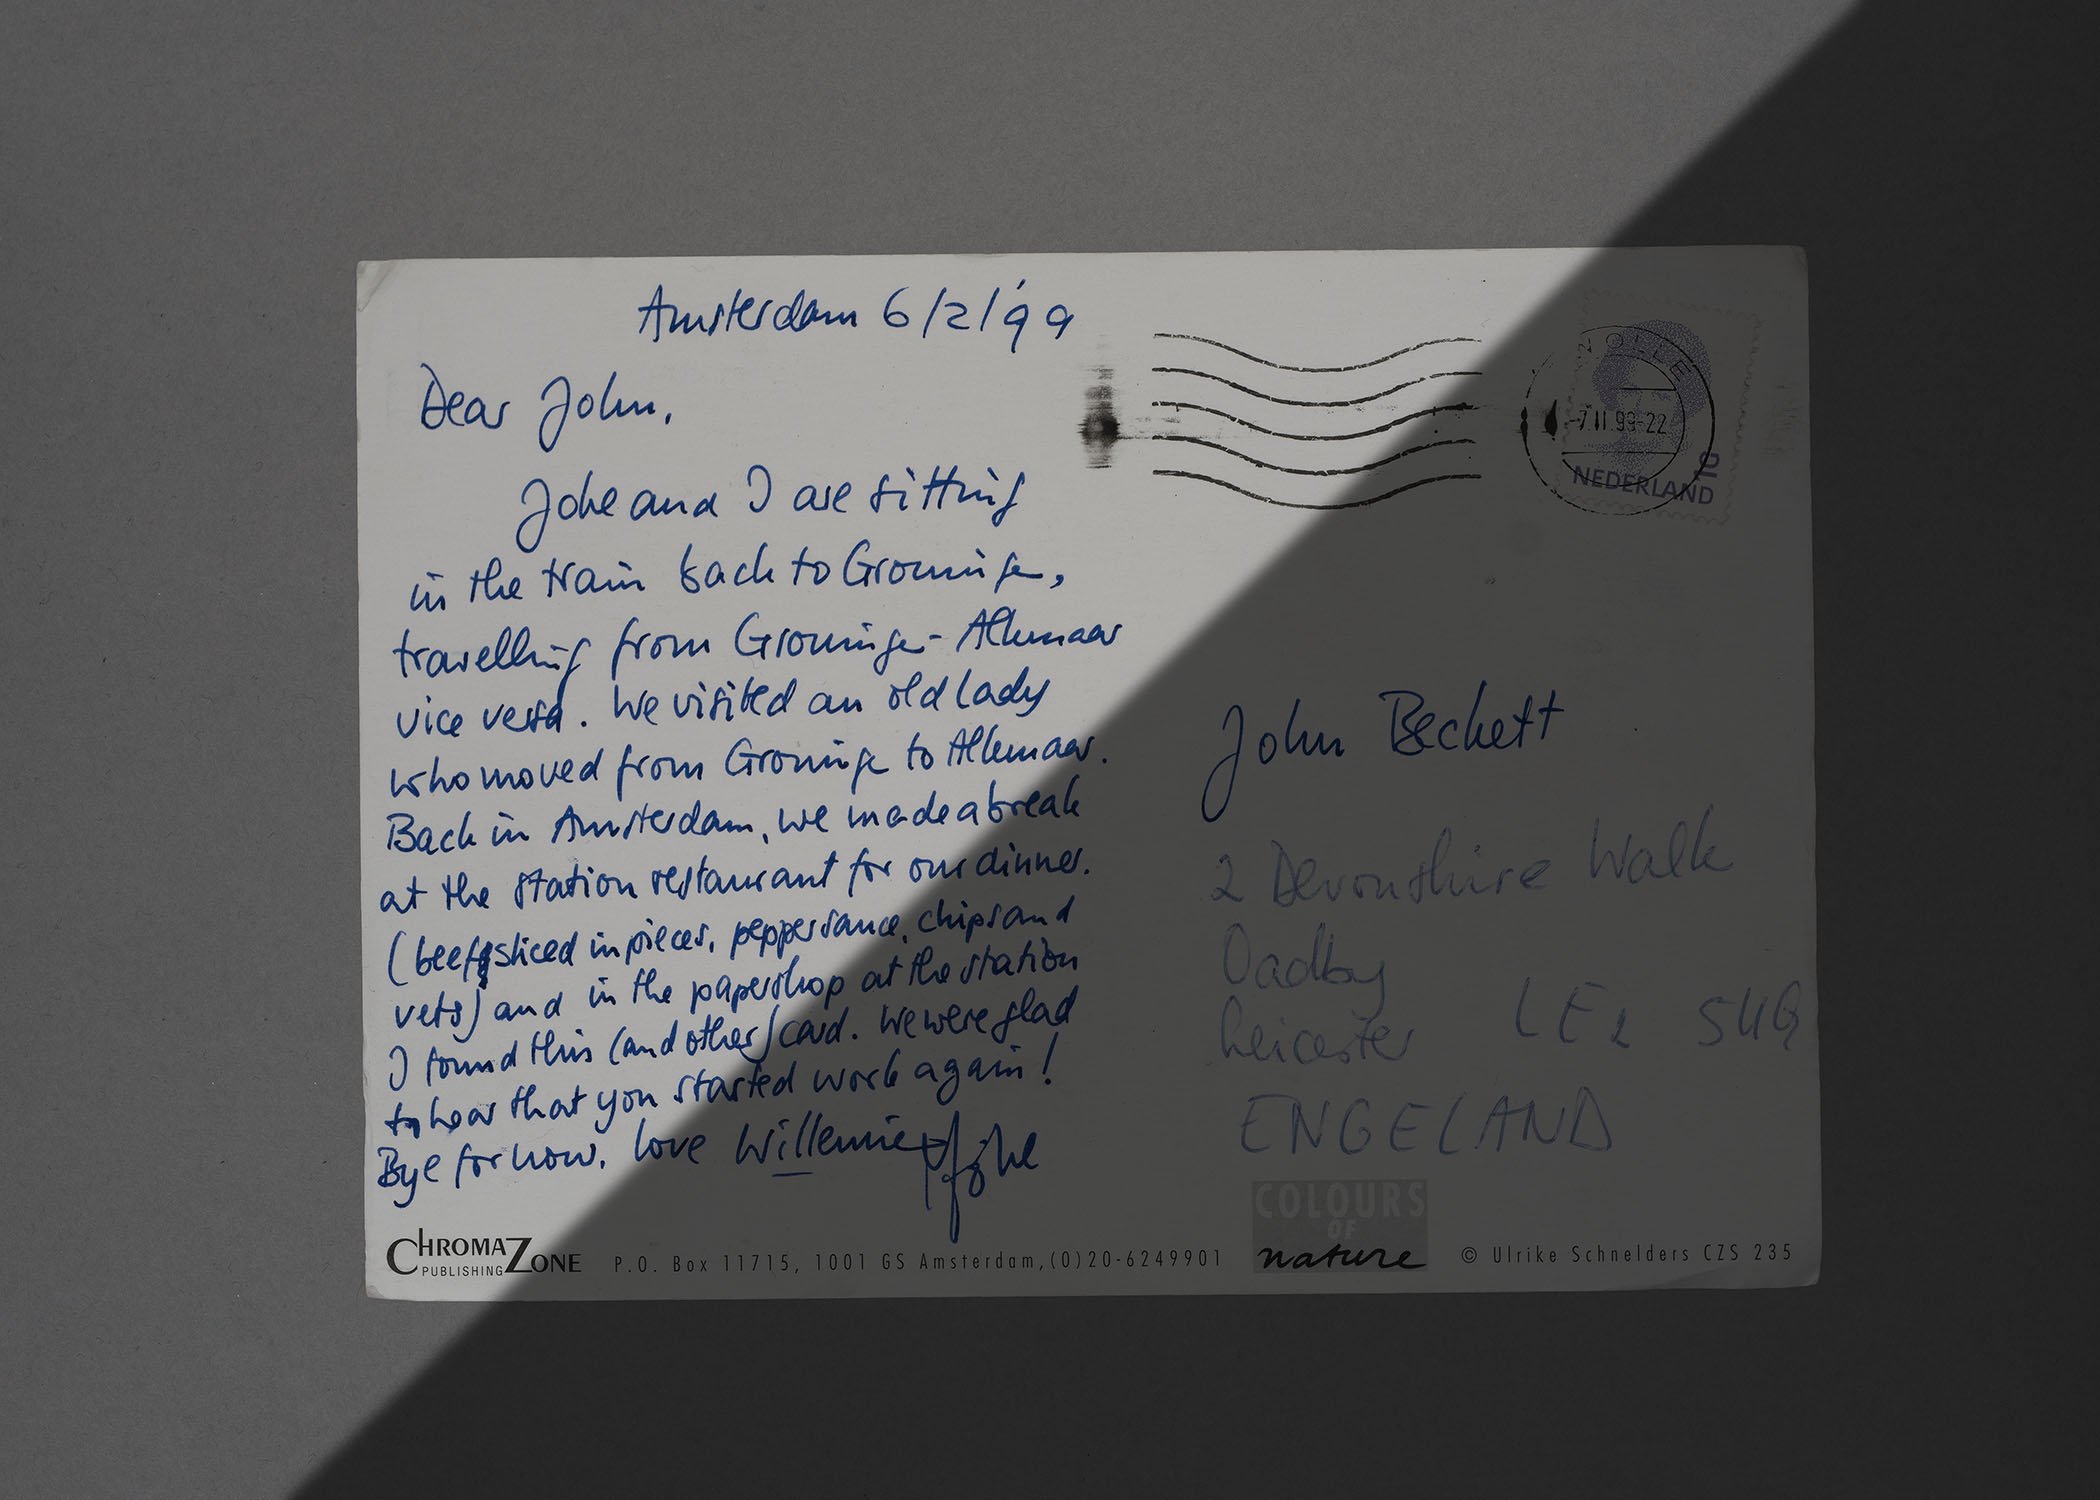 Amsterdam 6/2/'99
Dear John,
Joke and I are sitting
in the train back to Groningen,
travelling from Groningen-Alkmaar
vice versa. We visited an old lady
who moved from Groningen to Alkmaar.
Back in Amsterdam, we made a break
at the station restaurant for our dinner.
(beef sliced in pieces, peppersauce, chips and
vets) and in the papershop at the station
I found this (and other) card. We were glad
to hear that you started work again!
Bye for now, love Willemie Joke
ZWOLLE
-7.II.99-22
NEDERLAND
John Beckett
2 Devonshire Walk
Oadby
Leicester LE2
ENGELAND
CHROMAZONE
PUBLISHING
P.O. Box 11715, 1001 GS Amsterdam,(0)20-6249901
COLOURS
OF
nature
© Ulrike Schneiders CZS 235